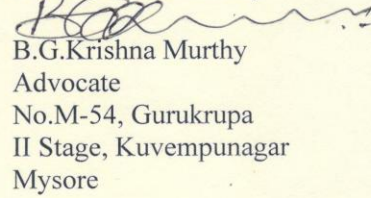 B.G.Krishna Murthy
Advocate
No.M-54, Gurukrupa
II Stage, Kuvempunagar
Mysore